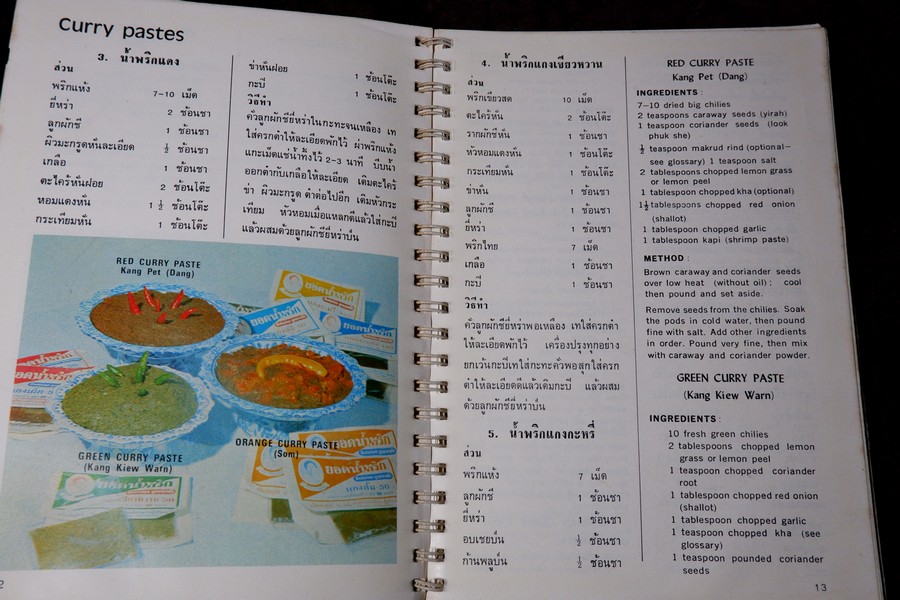 Curry pastes
3. น้ำพริกแดง
ส่วน
พริกแห้ง 7-10 เม็ด
ยี่หร่า 2 ช้อนชา
ลูกผักชี 1 ช้อนชา
ผิวมะกรูดหั่นละเอียด ½ ช้อนชา
เกลือ 1 ช้อนชา
ตะไคร้หั่นฝอย 2 ช้อนโต๊ะ
หอมแดงหั่น 1 ½ ช้อนโต๊ะ
กระเทียมหั่น 1 ช้อนโต๊ะ
ข่าหั่นฝอย 1 ช้อนโต๊ะ
กะปิ 1 ช้อนโต๊ะ
วิธีทำ
คั่วลูกผักชียี่หร่าในกะทะจนเหลือง เท
ใส่ครกตำให้ละเอียดพักไว้ ผ่าพริกแห้ง
แกะเม็ดแช่น้ำทิ้งไว้ 2-3 นาที บีบน้ำ
ออกตำกับเกลือให้ละเอียด เติมตะไคร้
ข่า ผิวมะกรูด ตำต่อไปอีก เติมหัวกระ
เทียม หัวหอมเมื่อแหลกดีแล้วใส่กะปิ
แล้วผสมด้วยลูกผักชียี่หร่าป่น
RED CURRY PASTE
Kang Pet (Dang)
GREEN CURRY PASTE
(Kang Kiew Warn)
ORANGE CURRY PASTE
(Som)
ยอดน้ำพริก
ยอดน้ำพริก
ยอดน้ำพริก
ยอดน้ำพริก
2
4. น้ำพริกแกงเขียวหวาน
ส่วน
พริกเขียวสด 10 เม็ด
ตะไคร้หั่น 2 ช้อนโต๊ะ
รากผักชีหั่น 1 ช้อนชา
หัวหอมแดงหั่น 1 ช้อนโต๊ะ
กระเทียมหั่น 1 ช้อนโต๊ะ
ข่าหั่น 1 ช้อนชา
ลูกผักชี 1 ช้อนชา
ยี่หร่า 1 ช้อนชา
พริกไทย 7 เม็ด
เกลือ 1 ช้อนชา
กะปิ 1 ช้อนชา
วิธีทำ
คั่วลูกผักชียี่หร่าพอเหลือง เทใส่ครกตำ
ให้ละเอียดพักไว้ เครื่องปรุงทุกอย่าง
ยกเว้นกะปิเทใส่กะทะคั่วพอสุกใส่ครก
ตำให้ละเอียดดีแล้วเติมกะปิ แล้วผสม
ด้วยลูกผักชียี่หร่าป่น
5. น้ำพริกแกงกะหรี่
ส่วน
พริกแห้ง 7 เม็ด
ลูกผักชี 1 ช้อนชา
ยี่หร่า 1 ช้อนชา
อบเชยป่น ½ ช้อนชา
ก้านพลูป่น ½ ช้อนชา
RED CURRY PASTE
Kang Pet (Dang)
INGREDIENTS :
7-10 dried big chilies
2 teaspoons caraway seeds (yirah)
1 teaspoon coriander seeds (look
phuk she)
½ teaspoon makrud rind (optional—
see glossary) 1 teaspoon salt
2 tablespoons chopped lemon grass
or lemon peel
1 tablespoon chopped kha (optional)
1½ tablespoons chopped red onion
(shallot)
1 tablespoon chopped garlic
1 tablespoon kapi (shrimp paste)
METHOD :
Brown caraway and coriander seeds
over low heat (without oil) ; cool
then pound and set aside.
Remove seeds from the chilies. Soak
the pods in cold water, then pound
fine with salt. Add other ingredients
in order. Pound very fine, then mix
with caraway and coriander powder.
GREEN CURRY PASTE
(Kang Kiew Warn)
INGREDIENTS :
10 fresh green chilies
2 tablespoons chopped lemon
grass or lemon peel
1 teaspoon chopped coriander
root
1 tablespoon chopped red onion
(shallot)
1 tablespoon chopped garlic
1 teaspoon chopped kha (see
glossary)
1 teaspoon pounded coriander
seeds
13